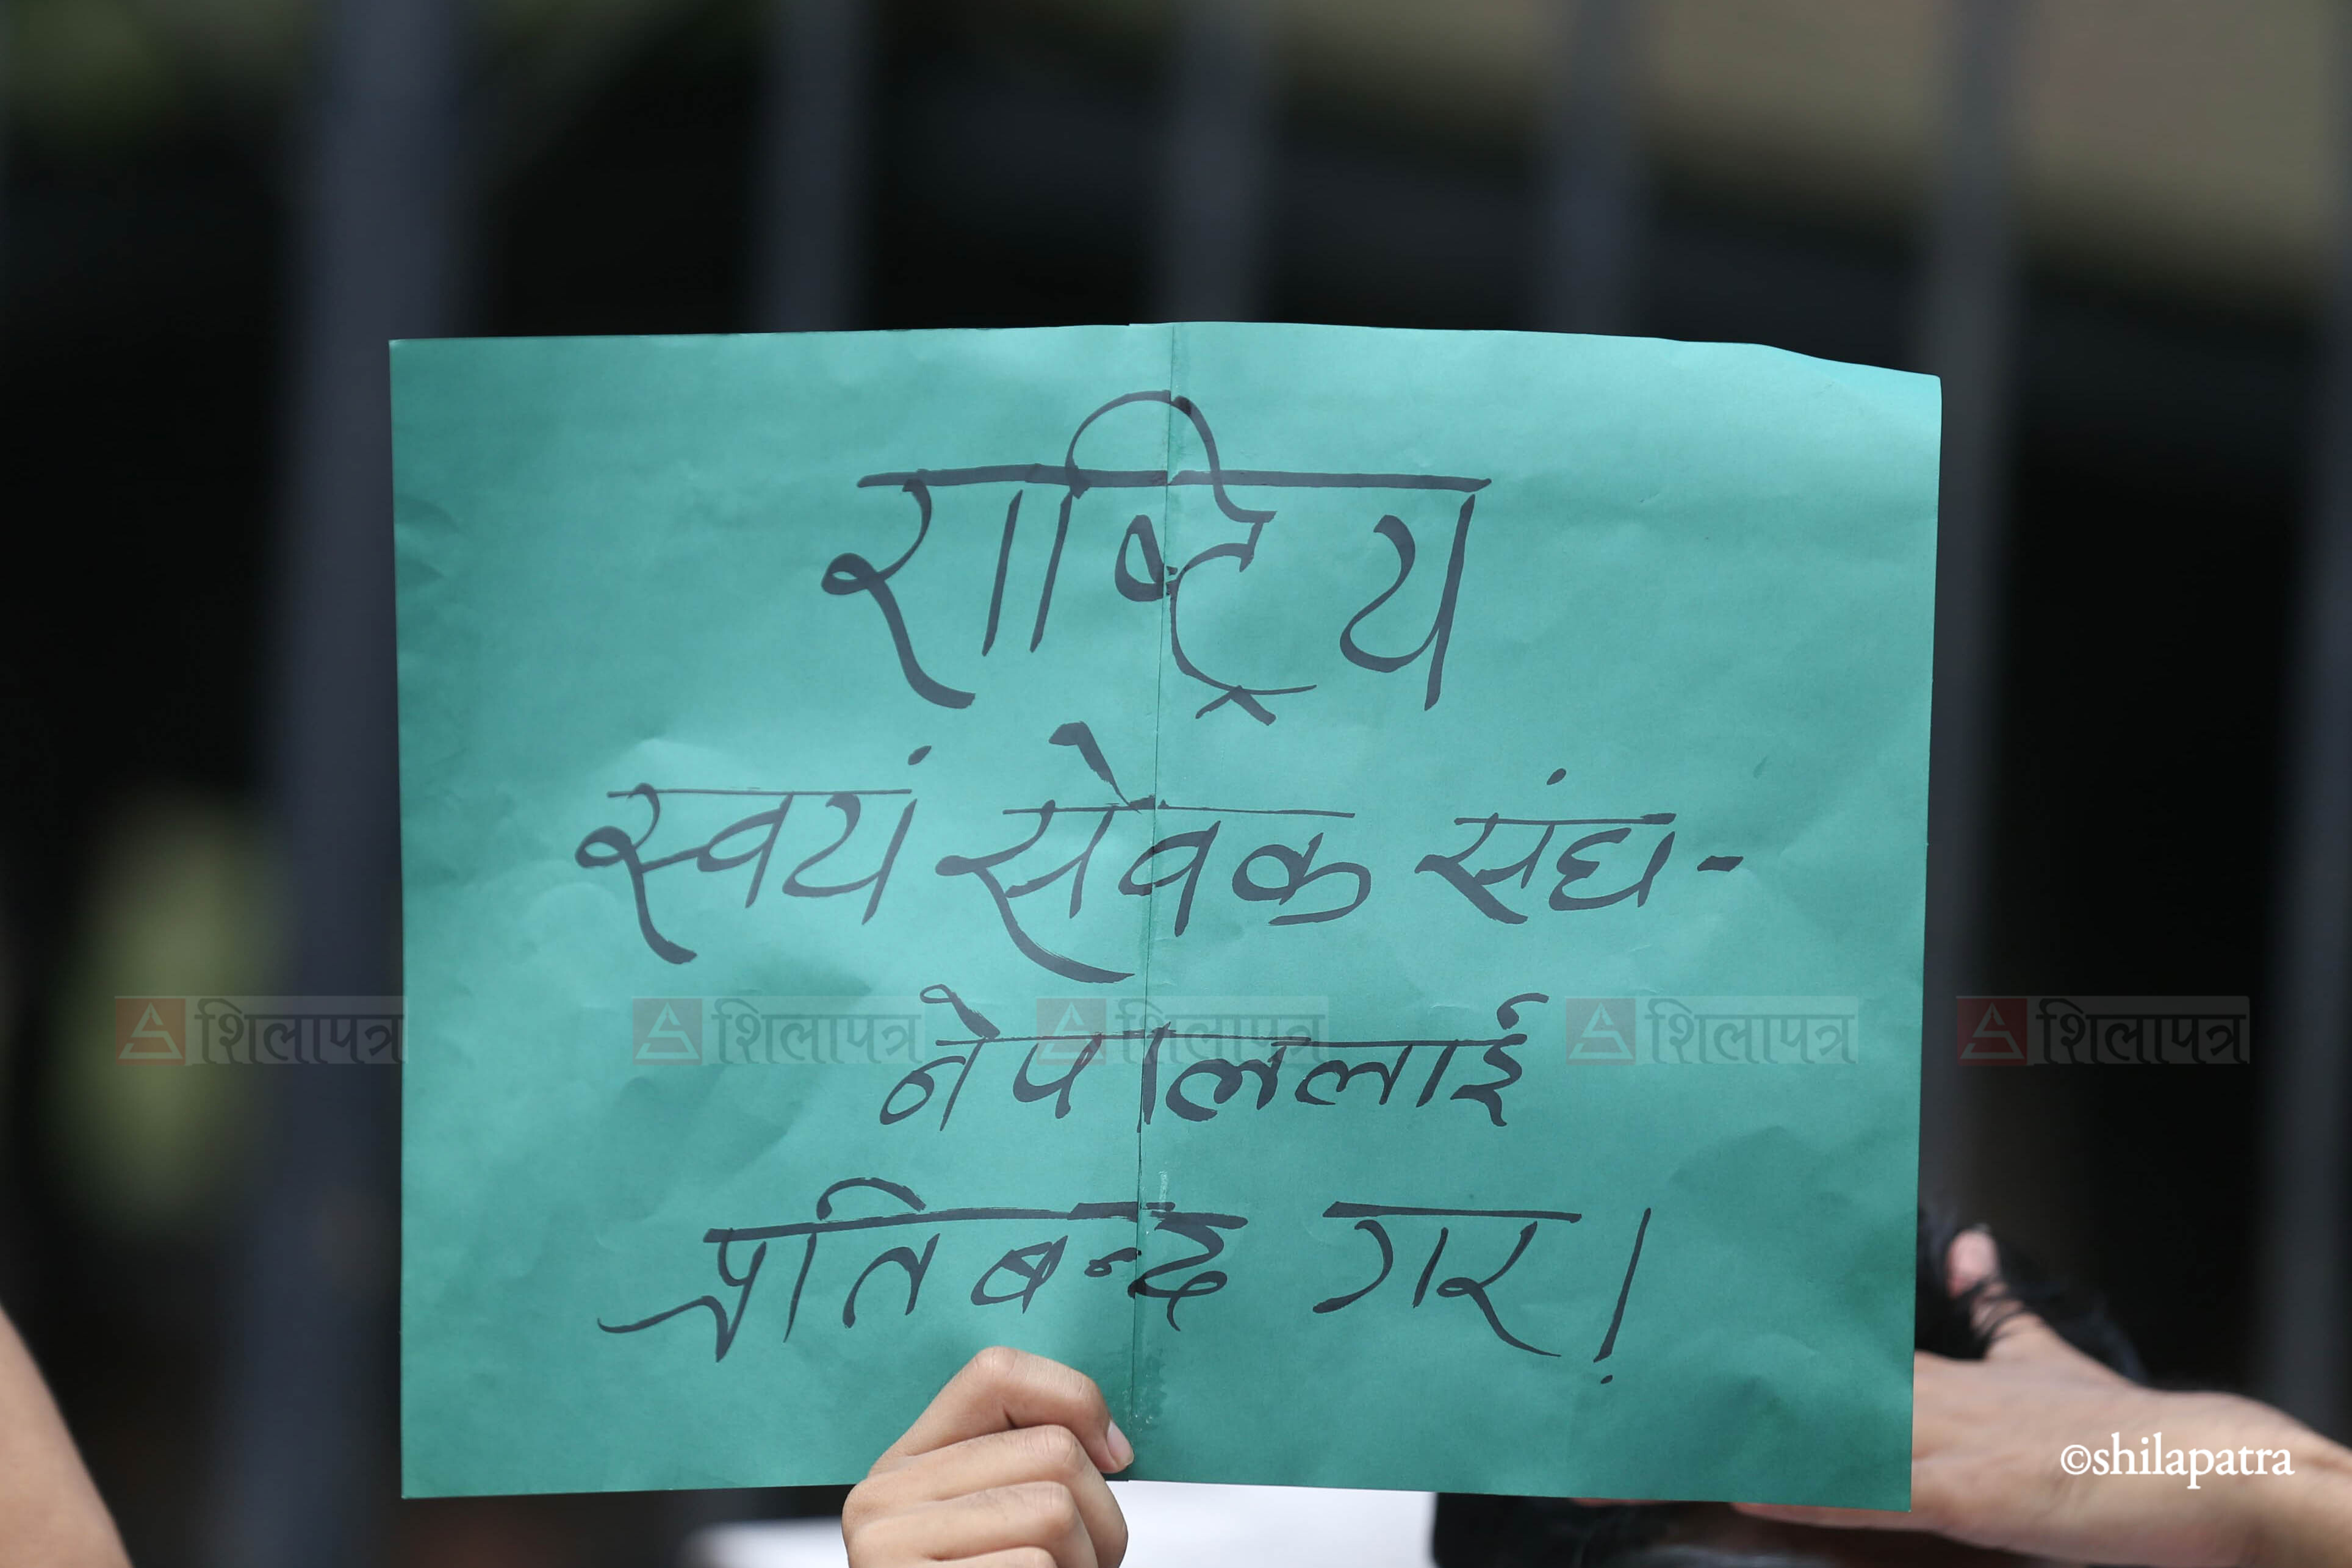 राष्ट्रिय
स्वयं सेवक संघ-
नेपाललाई
प्रतिबन्द गर!
शिलापत्र शिलापत्र शिलापत्र शिलापत्र शिलापत्र
©shilapatra